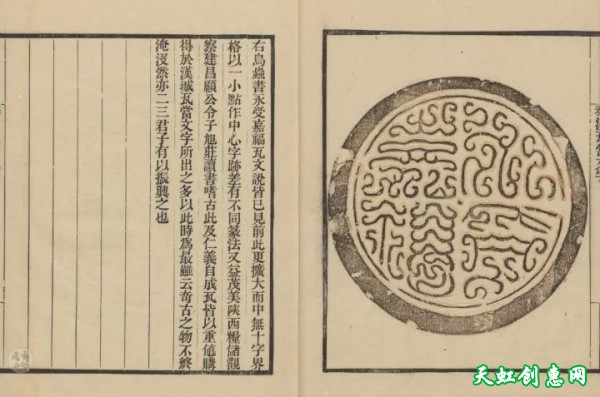 永受
嘉福
右鳥蟲書永受嘉福瓦文説皆已見前此更擴大而中無十字界
格以一小點作中心字跡差有不同篆法又益茂美陝西糧儲觀
察建昌顧公令子旭莊讀書嗜古此及仁義自成瓦皆以重値購
得於漢城瓦當文字所出之多以此時爲最雖云奇古之物不終
淹沒然亦二三君子有以振興之也
天虹创惠网